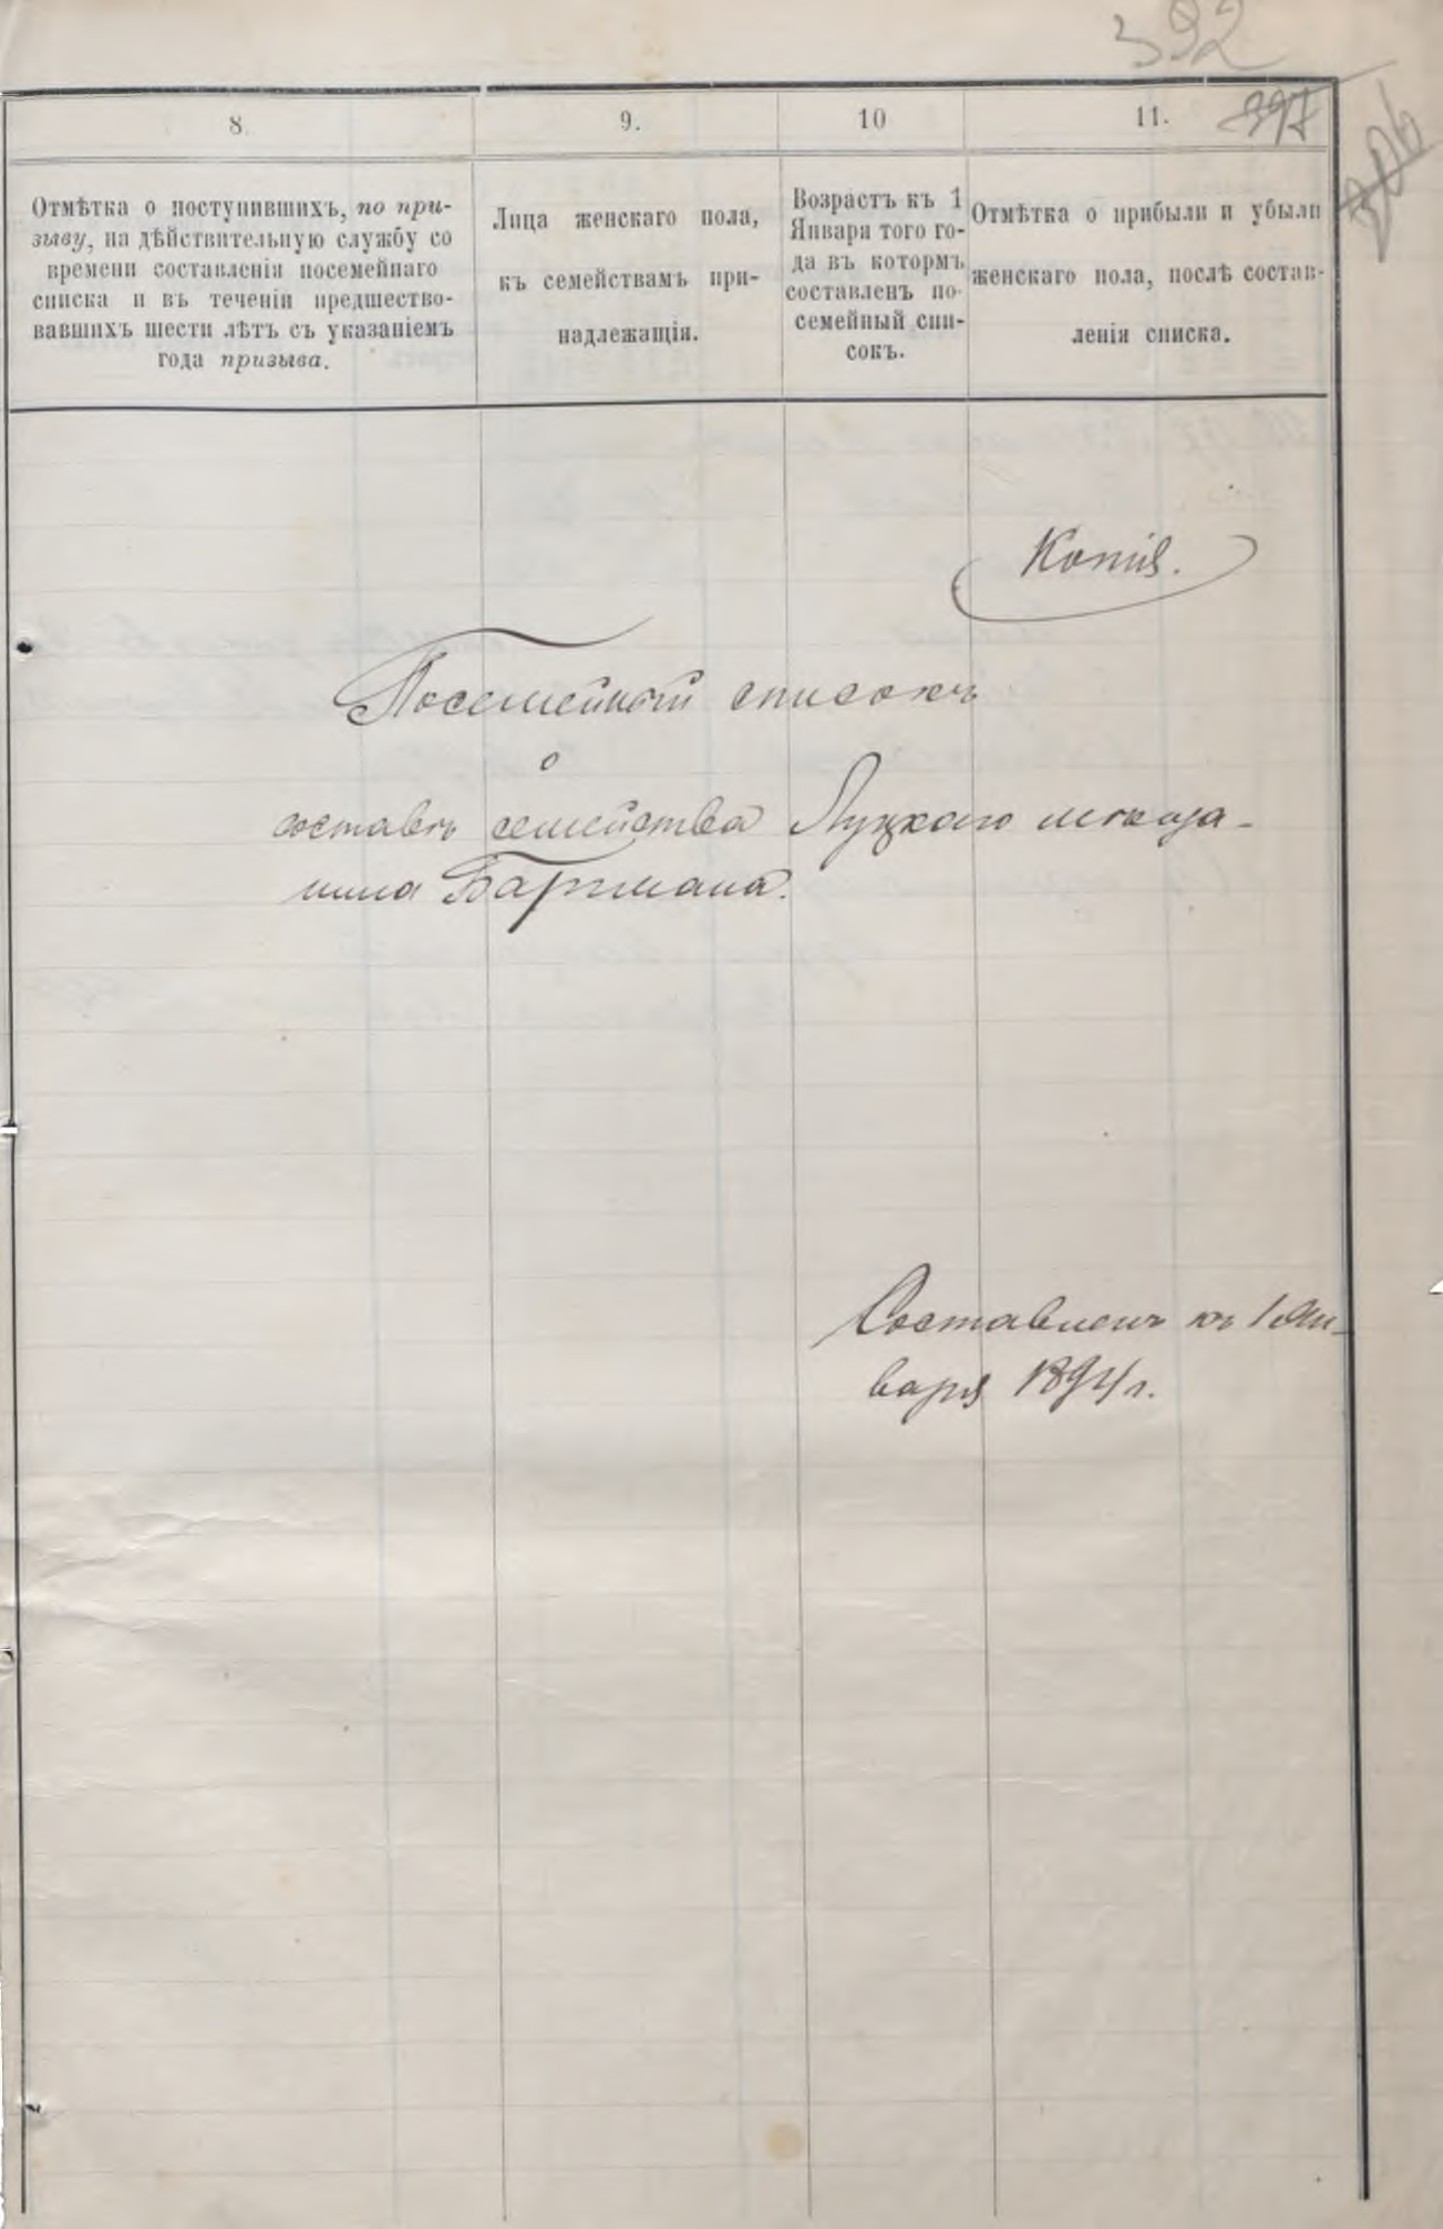 392
8.
9.
10
11.
397
Отмѣтка о поступившихъ, по при-
зыву, на дѣйствительную службу со
времени составленія посемейнаго
списка и въ теченіи предшество-
вавшихъ шести лѣтъ съ указаніемъ
года призыва.
Лица женскаго пола,
къ семействамъ при-
надлежащія.
Возрастъ къ 1
Января того го-
да въ котормъ
составленъ по-
семейный спи-
сокъ.
Отмѣтка о прибыли и убыли
женскаго пола, послѣ состав-
ленія списка.
Копія.
Посемейный списокъ
о
составѣ семейства Луцкаго мѣща-
нина Бармана.
Составленъ къ 1 Ян-
варя 1894 г.